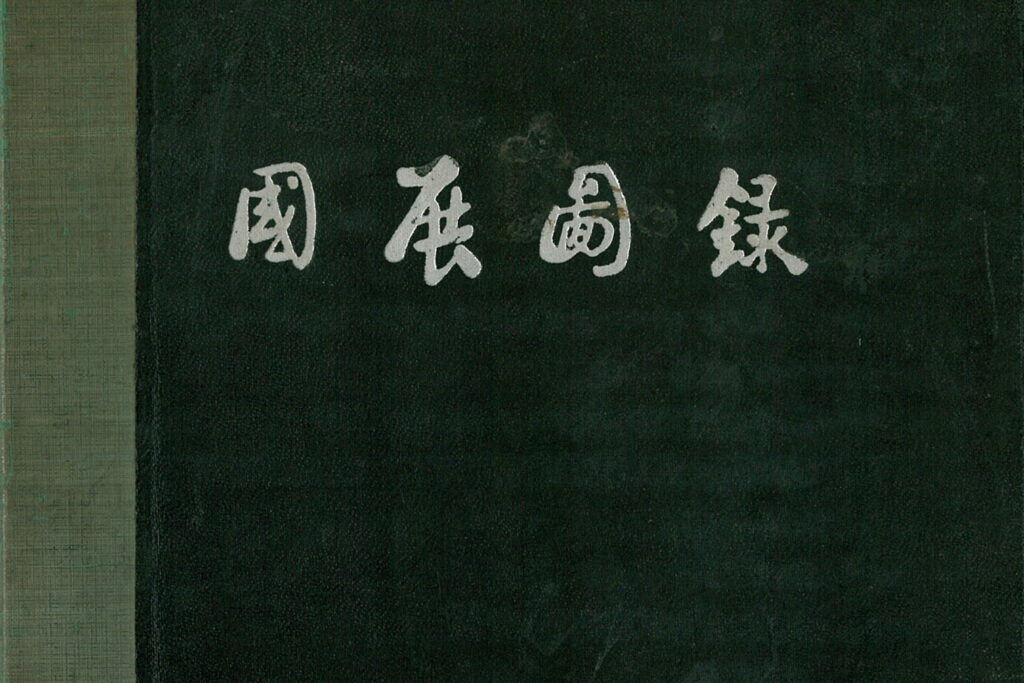 國展圖録